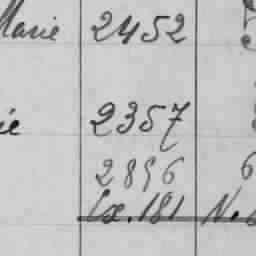 Marie 2452
ie 2357
2896 6
Cx. 181 N.